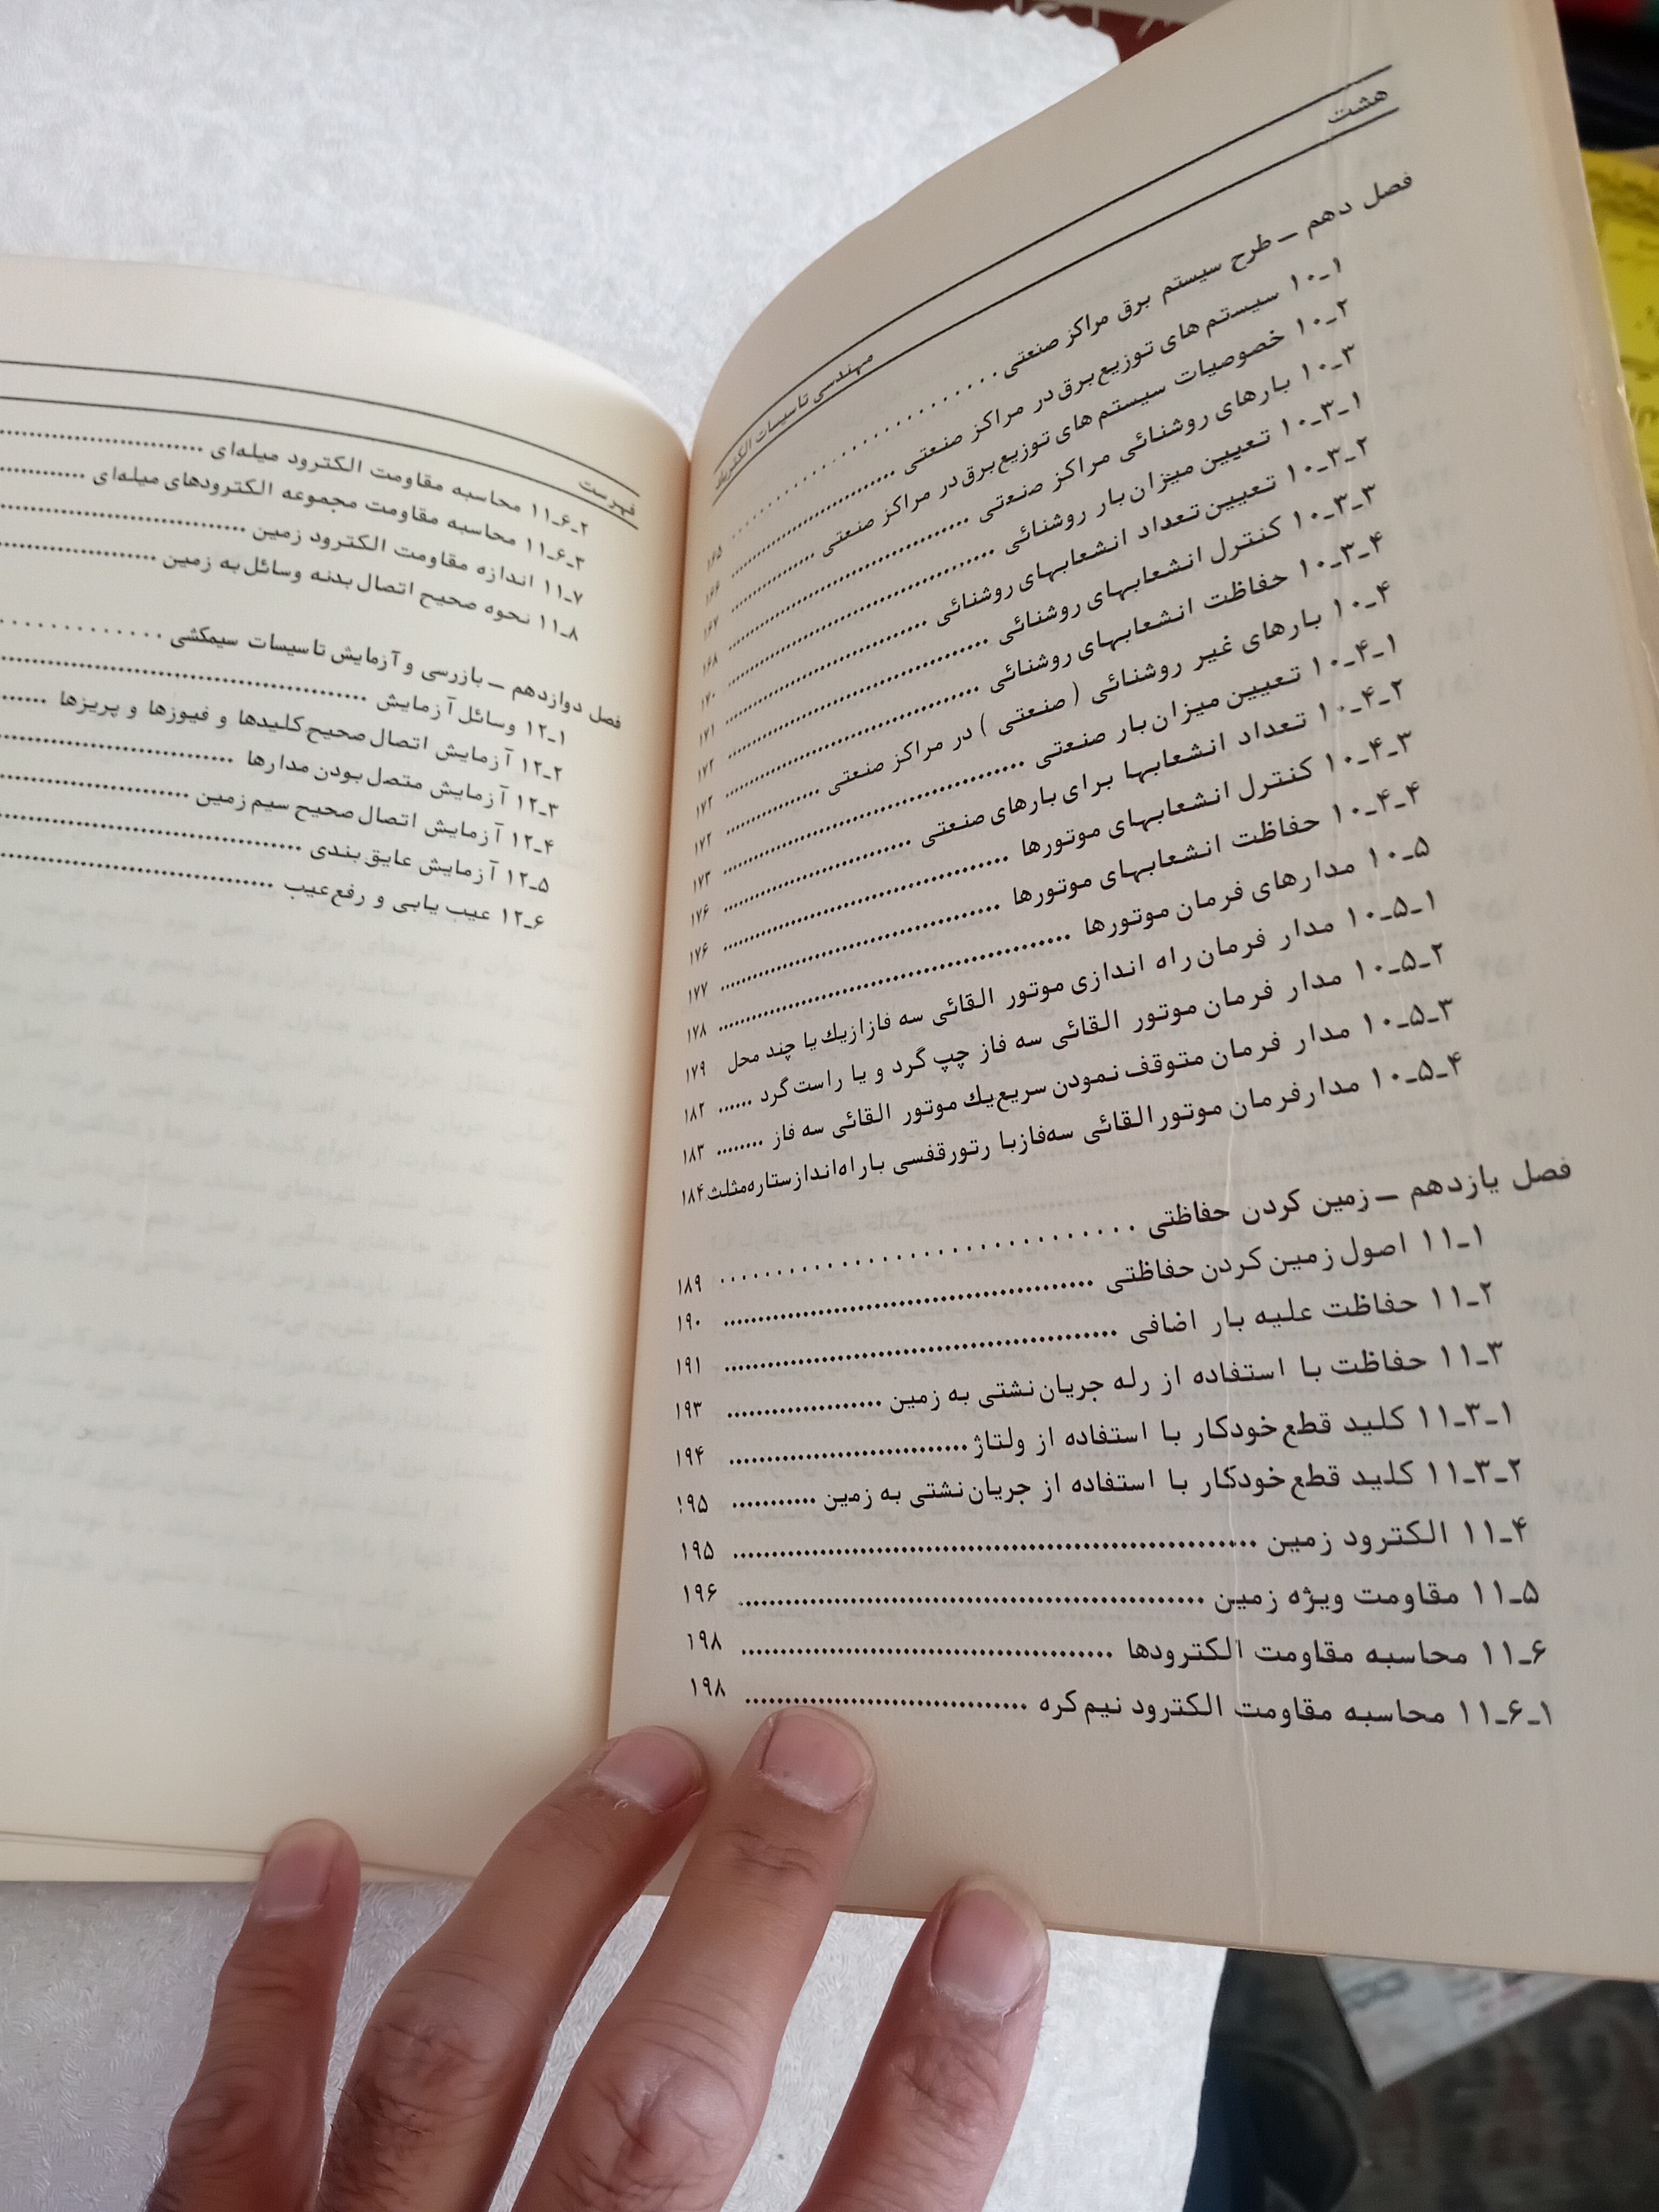 هشت
مهندسی تاسیسات الکتریکی
فصل دهم ــ طرح سیستم برق مراکز صنعتی .................... ۱۶۵
۱ـ۱۰ سیستم های توزیع برق در مراکز صنعتی .................... ۱۶۶
۲ـ۱۰ خصوصیات سیستم های توزیع برق در مراکز صنعتی .................... ۱۶۷
۳ـ۱۰ بارهای روشنائی مراکز صنعتی .................... ۱۶۸
۱ـ۳ـ۱۰ تعیین میزان بار روشنائی .................... ۱۷۰
۲ـ۳ـ۱۰ تعیین تعداد انشعابهای روشنائی .................... ۱۷۱
۳ـ۳ـ۱۰ کنترل انشعابهای روشنائی .................... ۱۷۲
۴ـ۳ـ۱۰ حفاظت انشعابهای روشنائی .................... ۱۷۲
۴ـ۱۰ بارهای غیر روشنائی ( صنعتی ) در مراکز صنعتی .................... ۱۷۲
۱ـ۴ـ۱۰ تعیین میزان بار صنعتی .................... ۱۷۳
۲ـ۴ـ۱۰ تعداد انشعابها برای بارهای صنعتی .................... ۱۷۶
۳ـ۴ـ۱۰ کنترل انشعابهای موتورها .................... ۱۷۶
۴ـ۴ـ۱۰ حفاظت انشعابهای موتورها .................... ۱۷۷
۵ـ۱۰ مدارهای فرمان موتورها .................... ۱۷۸
۱ـ۵ـ۱۰ مدار فرمان راه اندازی موتور القائی سه فاز ازیك یا چند محل ۱۷۹
۲ـ۵ـ۱۰ مدار فرمان موتور القائی سه فاز چپ گرد و یا راست گرد ...... ۱۸۲
۳ـ۵ـ۱۰ مدار فرمان متوقف نمودن سریع یك موتور القائی سه فاز ........ ۱۸۳
۴ـ۵ـ۱۰ مدارفرمان موتور القائی سه‌فاز با رتورقفسی با راه‌انداز ستاره‌مثلث ۱۸۴
فصل یازدهم ــ زمین کردن حفاظتی .................... ۱۸۹
۱ـ۱۱ اصول زمین کردن حفاظتی .................... ۱۹۰
۲ـ۱۱ حفاظت علیه بار اضافی .................... ۱۹۱
۳ـ۱۱ حفاظت با استفاده از رله جریان نشتی به زمین .................... ۱۹۳
۱ـ۳ـ۱۱ کلید قطع خودکار با استفاده از ولتاژ .................... ۱۹۴
۲ـ۳ـ۱۱ کلید قطع خودکار با استفاده از جریان نشتی به زمین ........... ۱۹۵
۴ـ۱۱ الکترود زمین .................... ۱۹۵
۵ـ۱۱ مقاومت ویژه زمین .................... ۱۹۶
۶ـ۱۱ محاسبه مقاومت الکترودها .................... ۱۹۸
۱ـ۶ـ۱۱ محاسبه مقاومت الکترود نیم کره .................... ۱۹۸
فهرست
۲ـ۶ـ۱۱ محاسبه مقاومت الکترود میله‌ای ....................
۳ـ۶ـ۱۱ محاسبه مقاومت مجموعه الکترودهای میله‌ای ............
۷ـ۱۱ اندازه مقاومت الکترود زمین ....................
۸ـ۱۱ نحوه صحیح اتصال بدنه وسائل به زمین ....................
فصل دوازدهم ــ بازرسی و آزمایش تاسیسات سیمکشی .............
۱ـ۱۲ وسائل آزمایش ....................
۲ـ۱۲ آزمایش اتصال صحیح کلیدها و فیوزها و پریزها .......
۳ـ۱۲ آزمایش متصل بودن مدارها ....................
۴ـ۱۲ آزمایش اتصال صحیح سیم زمین ....................
۵ـ۱۲ آزمایش عایق بندی ....................
۶ـ۱۲ عیب یابی و رفع عیب ....................